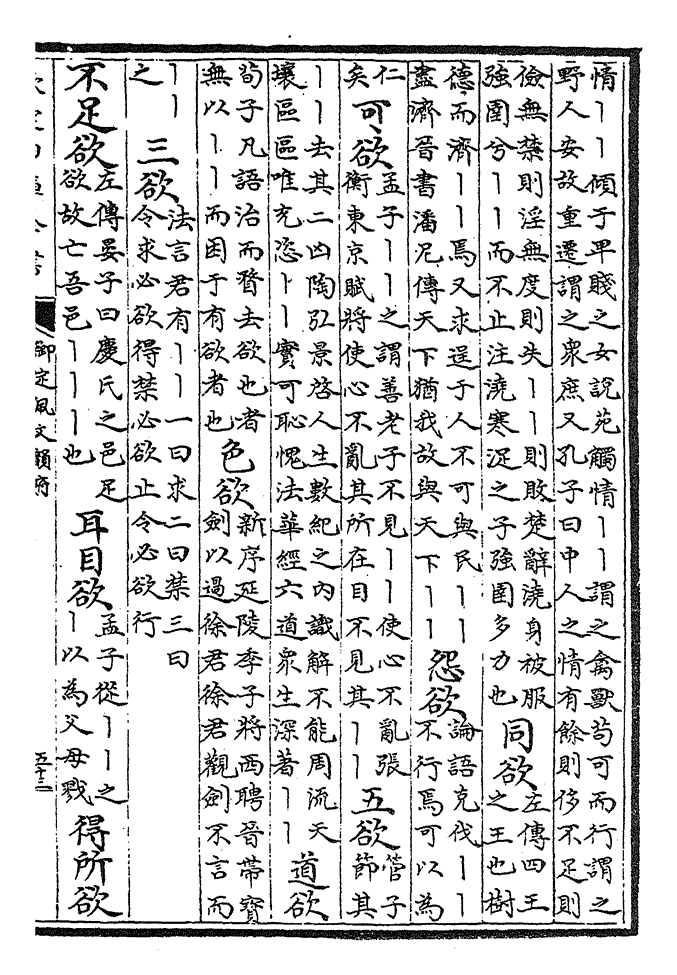 情丨丨傾于卑賤之女說苑觸情丨丨謂之禽獸苟可而行謂之
野人安故重遷謂之衆庶又孔子曰中人之情有餘則侈不足則
儉無禁則淫無度則失丨丨則敗楚辭澆身被服
強圉兮丨丨而不止注澆寒浞之子強圉多力也
同欲
左傳四王
之王也樹
德而濟丨丨焉又求逞于人不可與民丨丨
盡濟晉書潘尼傳天下猶我故與天下丨丨
怨欲
論語克伐丨丨
不行焉可以為
仁
矣
可欲
孟子丨丨之謂善老子不見丨丨使心不亂張
衡東京賦將使心不亂其所在目不見其丨丨
五欲
管子
節其
丨丨去其二凶陶弘景啓人生數紀之內識解不能周流天
壤區區唯充恣丨丨實可恥愧法華經六道衆生深著丨丨
道欲
荀子凡語治而瞀去欲也者
無以丨丨而困于有欲者也
色欲
新序延陵季子將西聘晉帶寶
劍以過徐君徐君觀劍不言而
丨丨
之
三欲
法言君有丨丨一曰求二曰禁三曰
令求必欲得禁必欲止令必欲行
不足欲
左傳晏子曰慶氏之邑足
欲故亡吾邑丨丨丨也
耳目欲
孟子從丨丨之
丨以為父母戮
得所欲
御定佩文韻府
五十三